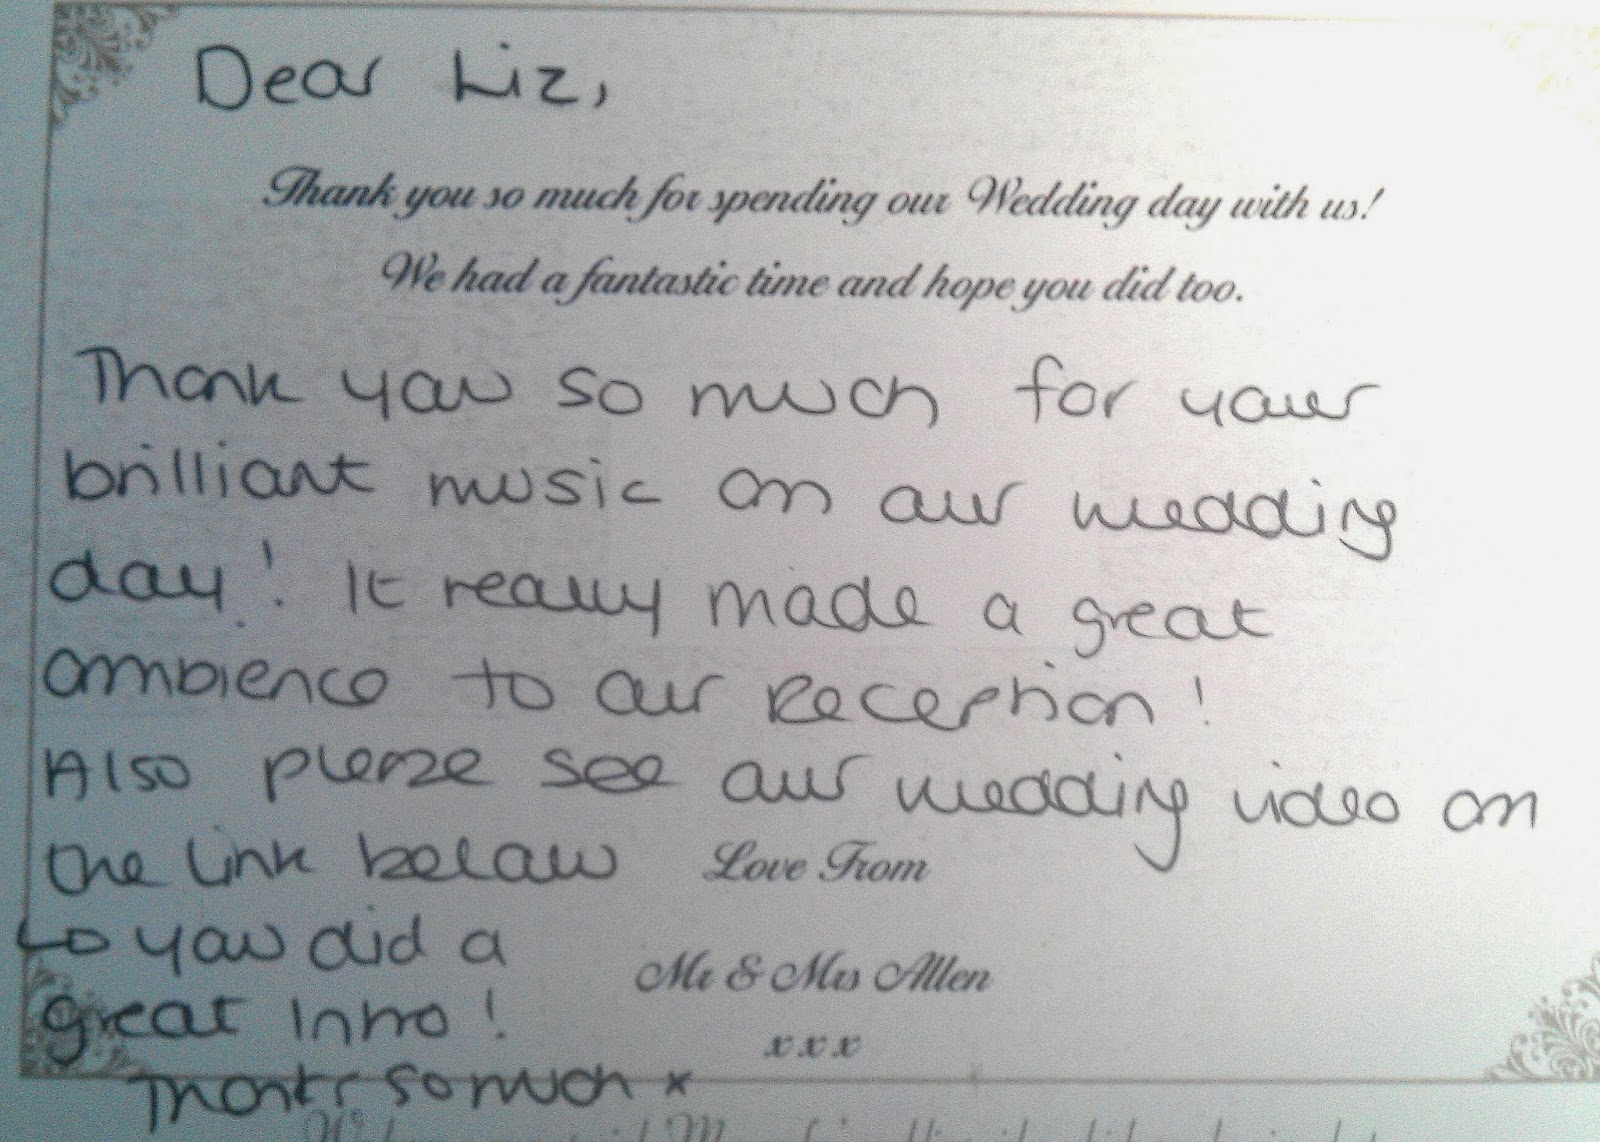 Dear Liz,
Thank you so much for spending our Wedding day with us!
We had a fantastic time and hope you did too.
Thank you so much for your
brilliant music on our wedding
day! It really made a great
ambience to our Reception!
Also please see our wedding video on
the link below
Love From
↳ you did a
Mr & Mrs Allen
great intro!
x x x
Thanks so much x